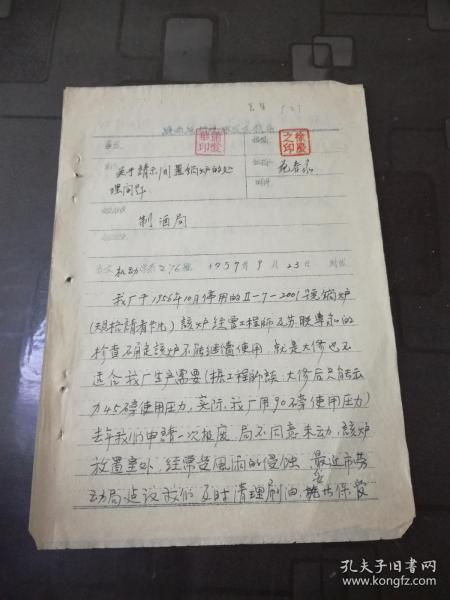 关于請示闲置鍋炉的处
理问题
制酒局
机动 字第276號 1957年9月23日
我厂于1956年10月停用的Ⅱ-7-2001號鍋炉
(規格請看卡片)該炉經曹工程师及苏联專家的
檢查不肯定該炉不能继續使用,就是大修也不
适合我厂生产需要(据工程师談,大修后只能出
力45磅使用压力,实际我厂用90磅使用压力)
去年我们申請一次报废,局不同意未动,該炉
放置室外,經常受風雨的侵蝕,最近市劳
动局建议我们及时清理刷油,妥为保管
孔夫子旧书网
www.kongfz.com